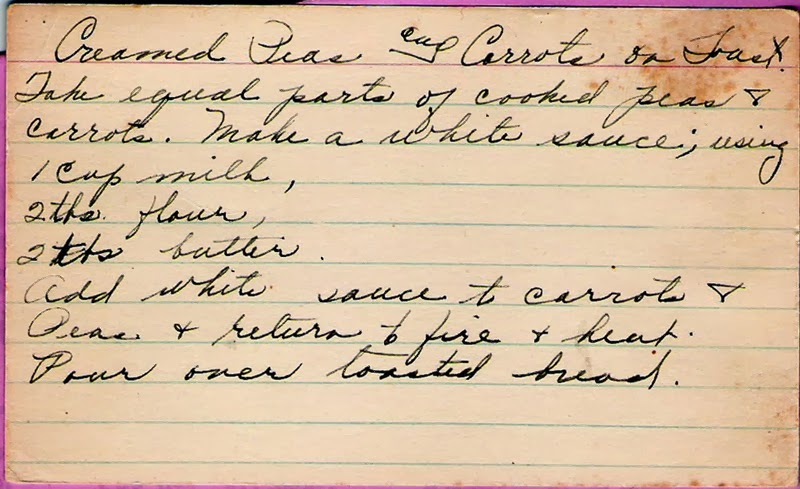 Creamed Peas and Carrots on Toast.
Take equal parts of cooked peas &
carrots. Make a white sauce; using
1 cup milk,
2 tbs. flour,
2 tbs butter.
Add white sauce to carrots &
Peas & return to fire & heat.
Pour over toasted bread.